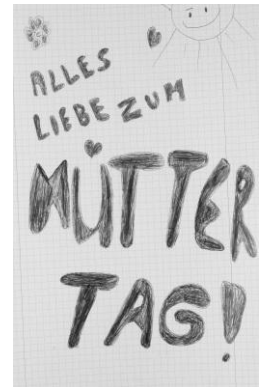 ALLES
LIEBE ZUM
MUTTER
TAG!